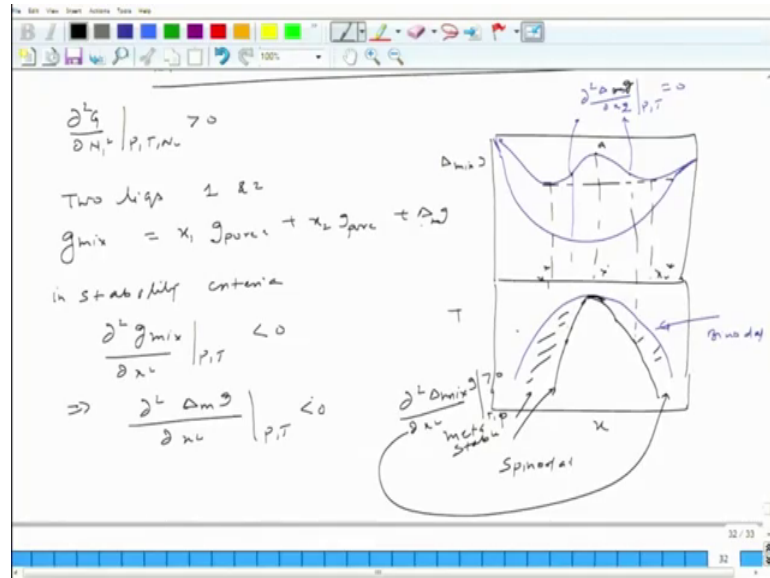 File Edit View Insert Actions Tools Help
B I
100%
∂²G/∂N₁² |P,T,N₂ > 0
Two liqs 1 & 2
g mix = x₁ g pure 1 + x₂ g pure + Δm g
in stability criteria
∂² g mix/∂x² |P,T < 0
⇒ ∂² Δm g/∂x² |P,T < 0
∂² Δm g/∂x² |P,T = 0
Δmix g
a
x* x' x₂*
T
Binodal
∂² Δmix g/∂x² |T,P > 0
meta stable
Spinodal
x
32 / 33
32